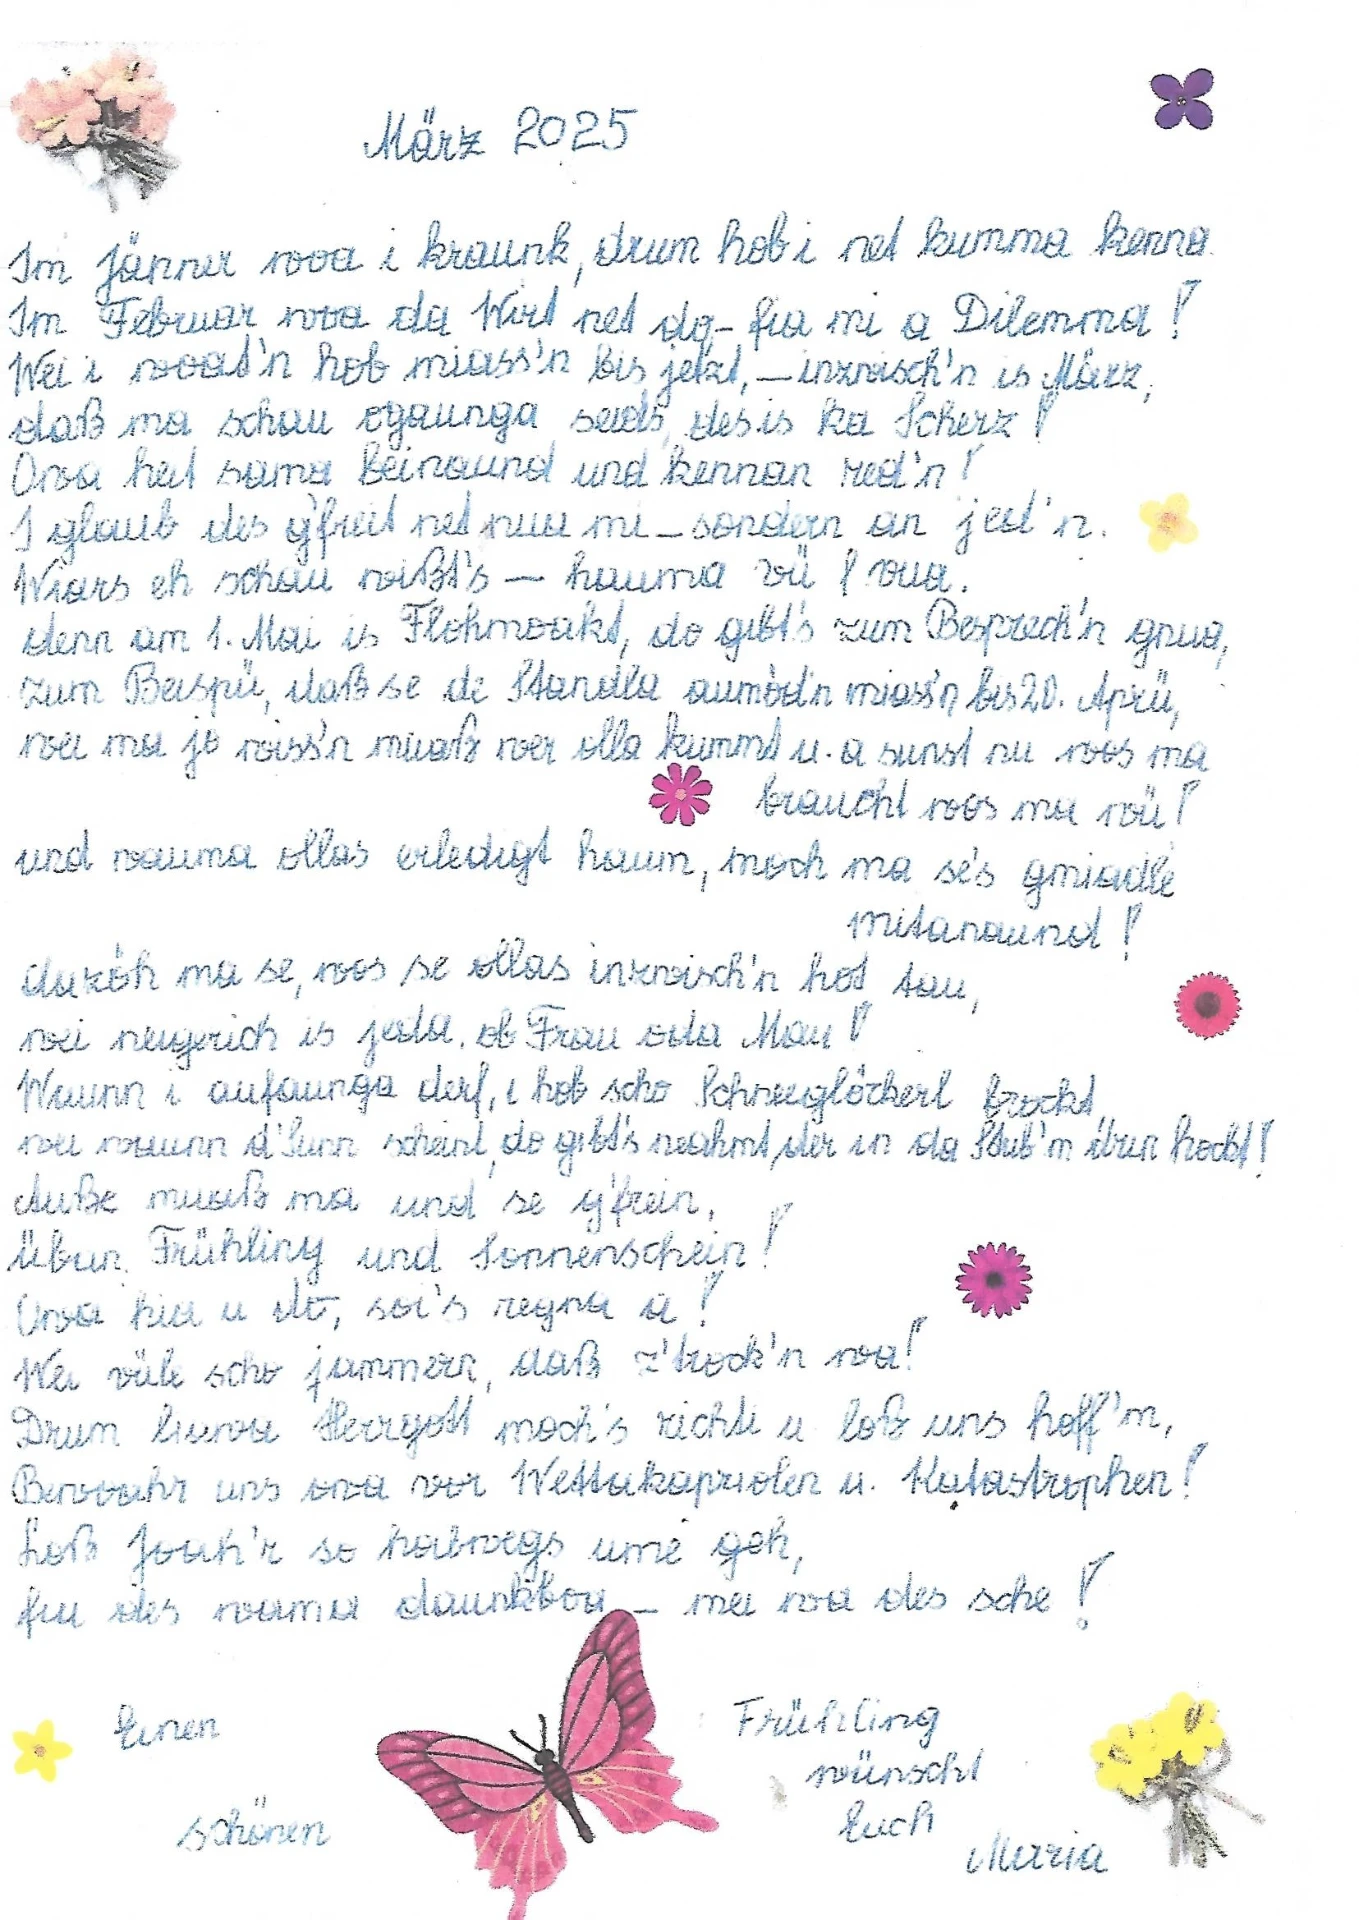 März 2025
Im Jänner woa i kraunk, drum hob i net kumma kenna.
Im Februar woa da Wirt net do – fia mi a Dilemma!
Wei i woat'n hob miass'n bis jetzt, – inzwisch'n is März,
daß ma schau ogaunga seids, des is ka Scherz!
Owa heit sama beinaund und kennan red'n!
I glaub des g'freit net nua mi – sondern an jed'n.
Wiars eh schau wißt's – hauma vü vua.
denn am 1. Mai is Flohmoakt, do gibt's zum Besprech'n gnua,
zum Beispü, daß se de Standla aumöd'n miass'n bis 20. Aprü,
wei ma jo wiss'n muaß wer olla kummt u. a sunst nu wos ma
braucht wos ma wü!
und wauma ollas erledigt haum, moch ma se's gmiadle
mitanaund!
dazöh ma se, wos se ollas inzwisch'n hot tau,
wei neugerich is jeda, ob Frau oda Mau!
Waunn i aufaunga derf, i hob scho Schneeglöckerl brockt,
wei waunn d'Sunn scheint, do gibt's neahmt, der in da Stub'm drin hockt!
Auße muaß ma und se g'frein,
übern Frühling und Sonnenschein!
Owa hia u do, soi's regna a!
Wei vüle scho jammern, daß z'trock'n wa!
Drum liawa Herrgott moch's richti u loß uns hoff'm,
Bewoahr uns owa vor Wettakapriolen u. Katastrophen!
Loß Joah'r so habwegs ume geh,
fia des warma daunkboa – mei wa des sche!
Einen
schönen
Frühling
wünscht
Euch
Maria